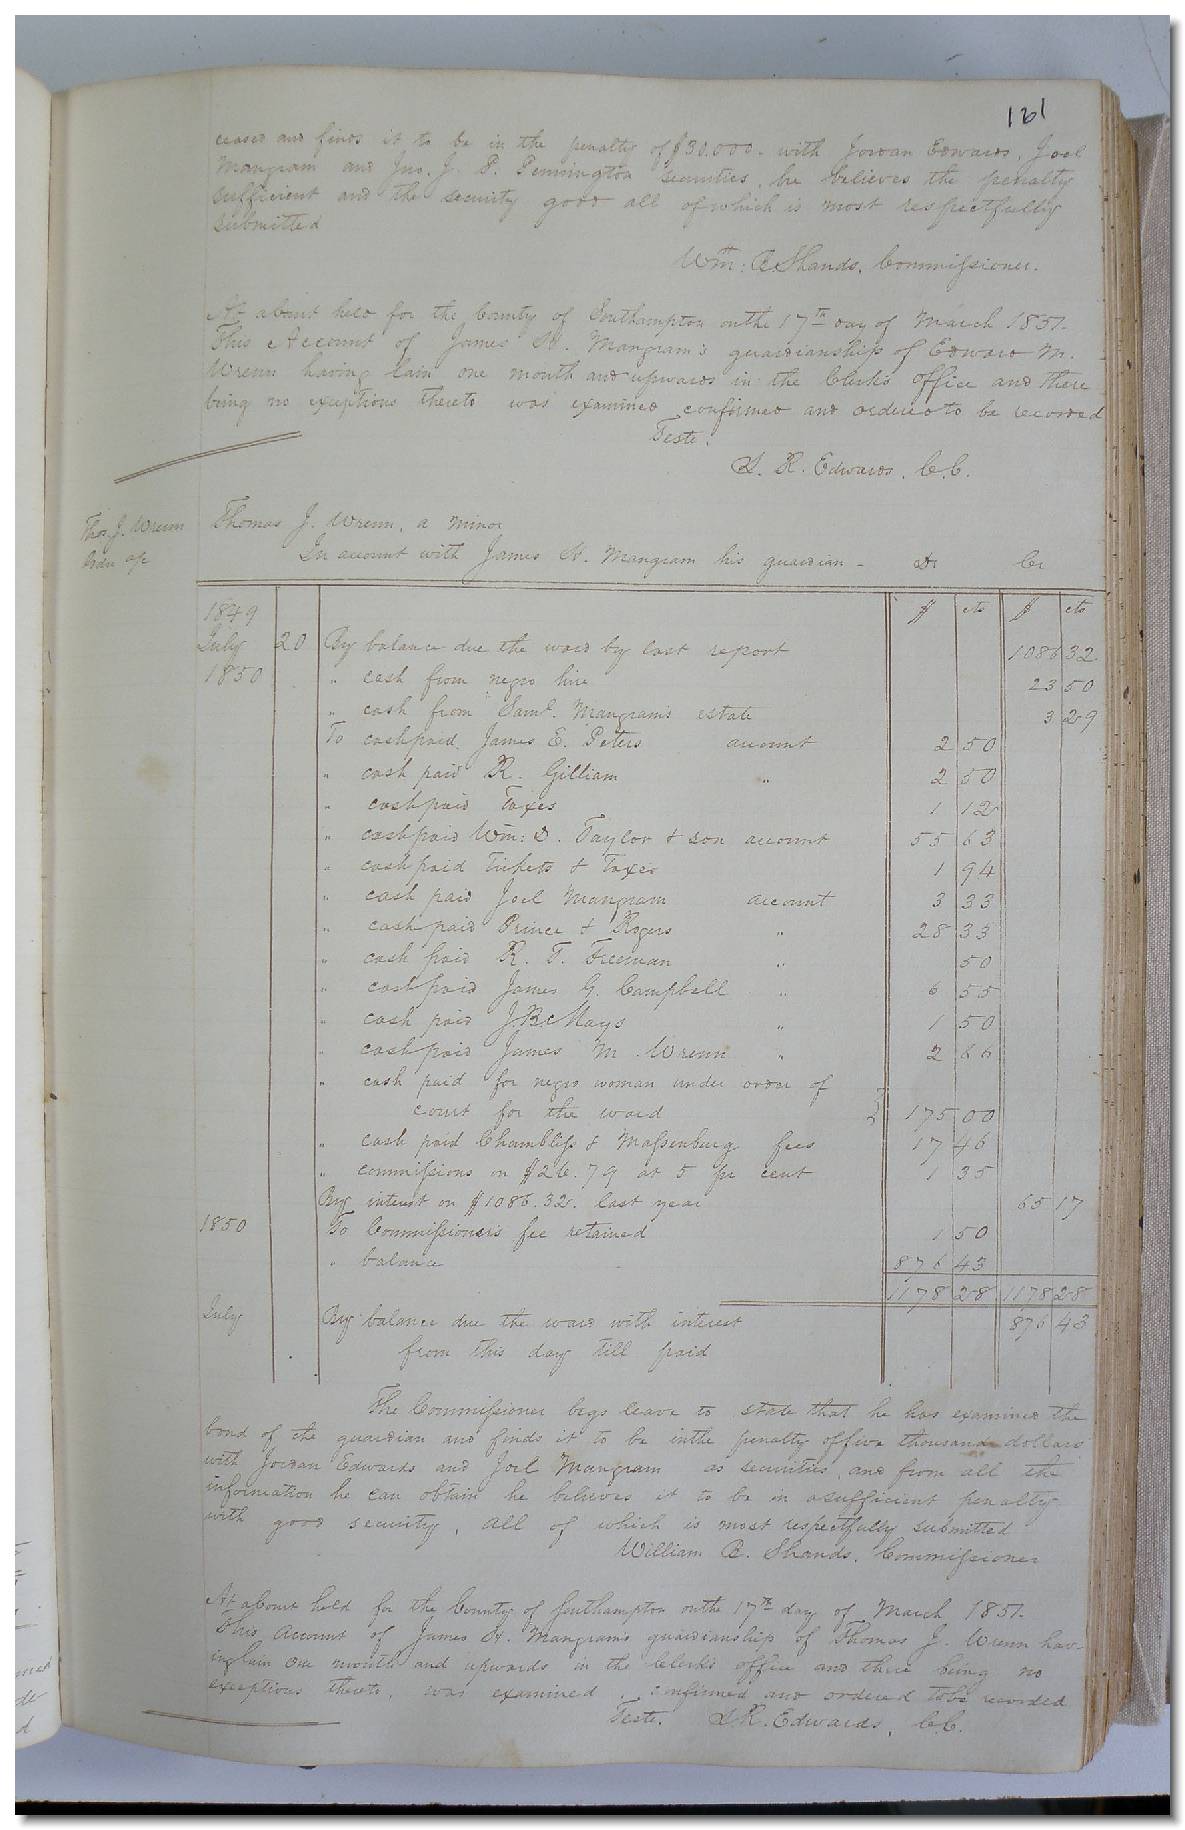 161
ceased and finds it to be in the penalty of $30.000. with Jordan Edwards, Joel
Mangram and Jno. J. P. Pennington securities, he believes the penalty
sufficient and the security good all of which is most respectfully
submitted
Wm: B. Shands, Commissioner.
At a Court held for the County of Southampton on the 17th day of March 1851.
This Account of James H. Mangram's guardianship of Edward M.
Wrenn having lain one month and upwards in the Clerk's office and there
being no exceptions thereto was examined confirmed and ordered to be recorded
Teste.
L. R. Edwards, C.C.
Thos. J. Wrenn
Thomas J. Wrenn, a minor
In account with James H. Mangram his guardian - Dr Cr
1849 $ cts $ cts
July 20 By balance due the ward by last report 1086 32
1850 " cash from negro hire 23 50
" cash from Saml. Mangram's estate 3 29
To cash paid James E. Peters account 2 50
" cash paid R. Gilliam " 2 50
" cash paid Taxes 1 12
" cash paid Wm: D. Taylor & son account 55 63
" cash paid Tickets & Taxes 1 94
" cash paid Joel Mangram account 3 33
" cash paid Prince & Rogers " 28 33
" cash paid R. T. Freeman " 50
" cash paid James G. Campbell " 6 55
" cash paid J.B. Mays " 1 50
" cash paid James M. Wrenn " 2 66
" cash paid for negro woman under order of
court for the ward 175 00
" cash paid Chambliss & Massenburg fees 17 46
" commissions on $26.79 at 5 pr cent 1 35
By interest on $1086.32. last year 65 17
1850 To Commissioners fee retained 1 50
" balance 876 43
1178 28 1178 28
July By balance due the ward with interest 876 43
from this day till paid
The Commissioner begs leave to state that he has examined the
bond of the guardian and finds it to be in the penalty of five thousand dollars
with Jordan Edwards and Joel Mangram as securities, and from all the
information he can obtain he believes it to be in a sufficient penalty
with good security, all of which is most respectfully submitted
William B. Shands, Commissioner
At a Court held for the County of Southampton on the 17th day of March 1851.
This Account of James H. Mangram's guardianship of Thomas J. Wrenn hav-
ing lain one month and upwards in the Clerk's office and there being no
exceptions thereto, was examined confirmed and ordered to be recorded
Teste. L.R. Edwards, C.C.